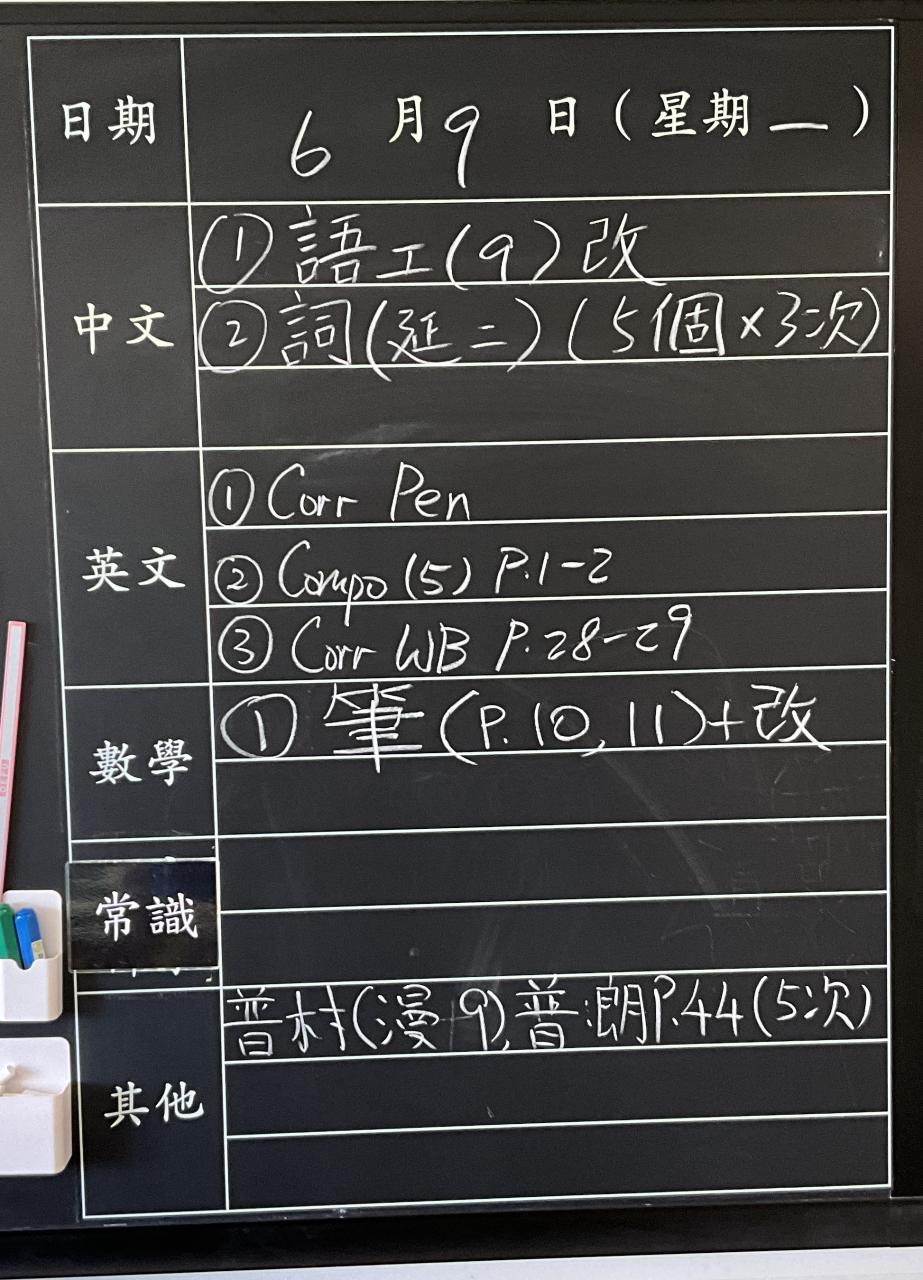 日期 6月9日(星期一)
中文
①語工(9)改
②詞(延二)(5個×3次)
英文
① Corr Pen
② Compo (5) P.1-2
③ Corr WB P.28-29
數學
① 筆(P.10,11)+改
常識
其他
普村(漫9),普朗P.44(5次)